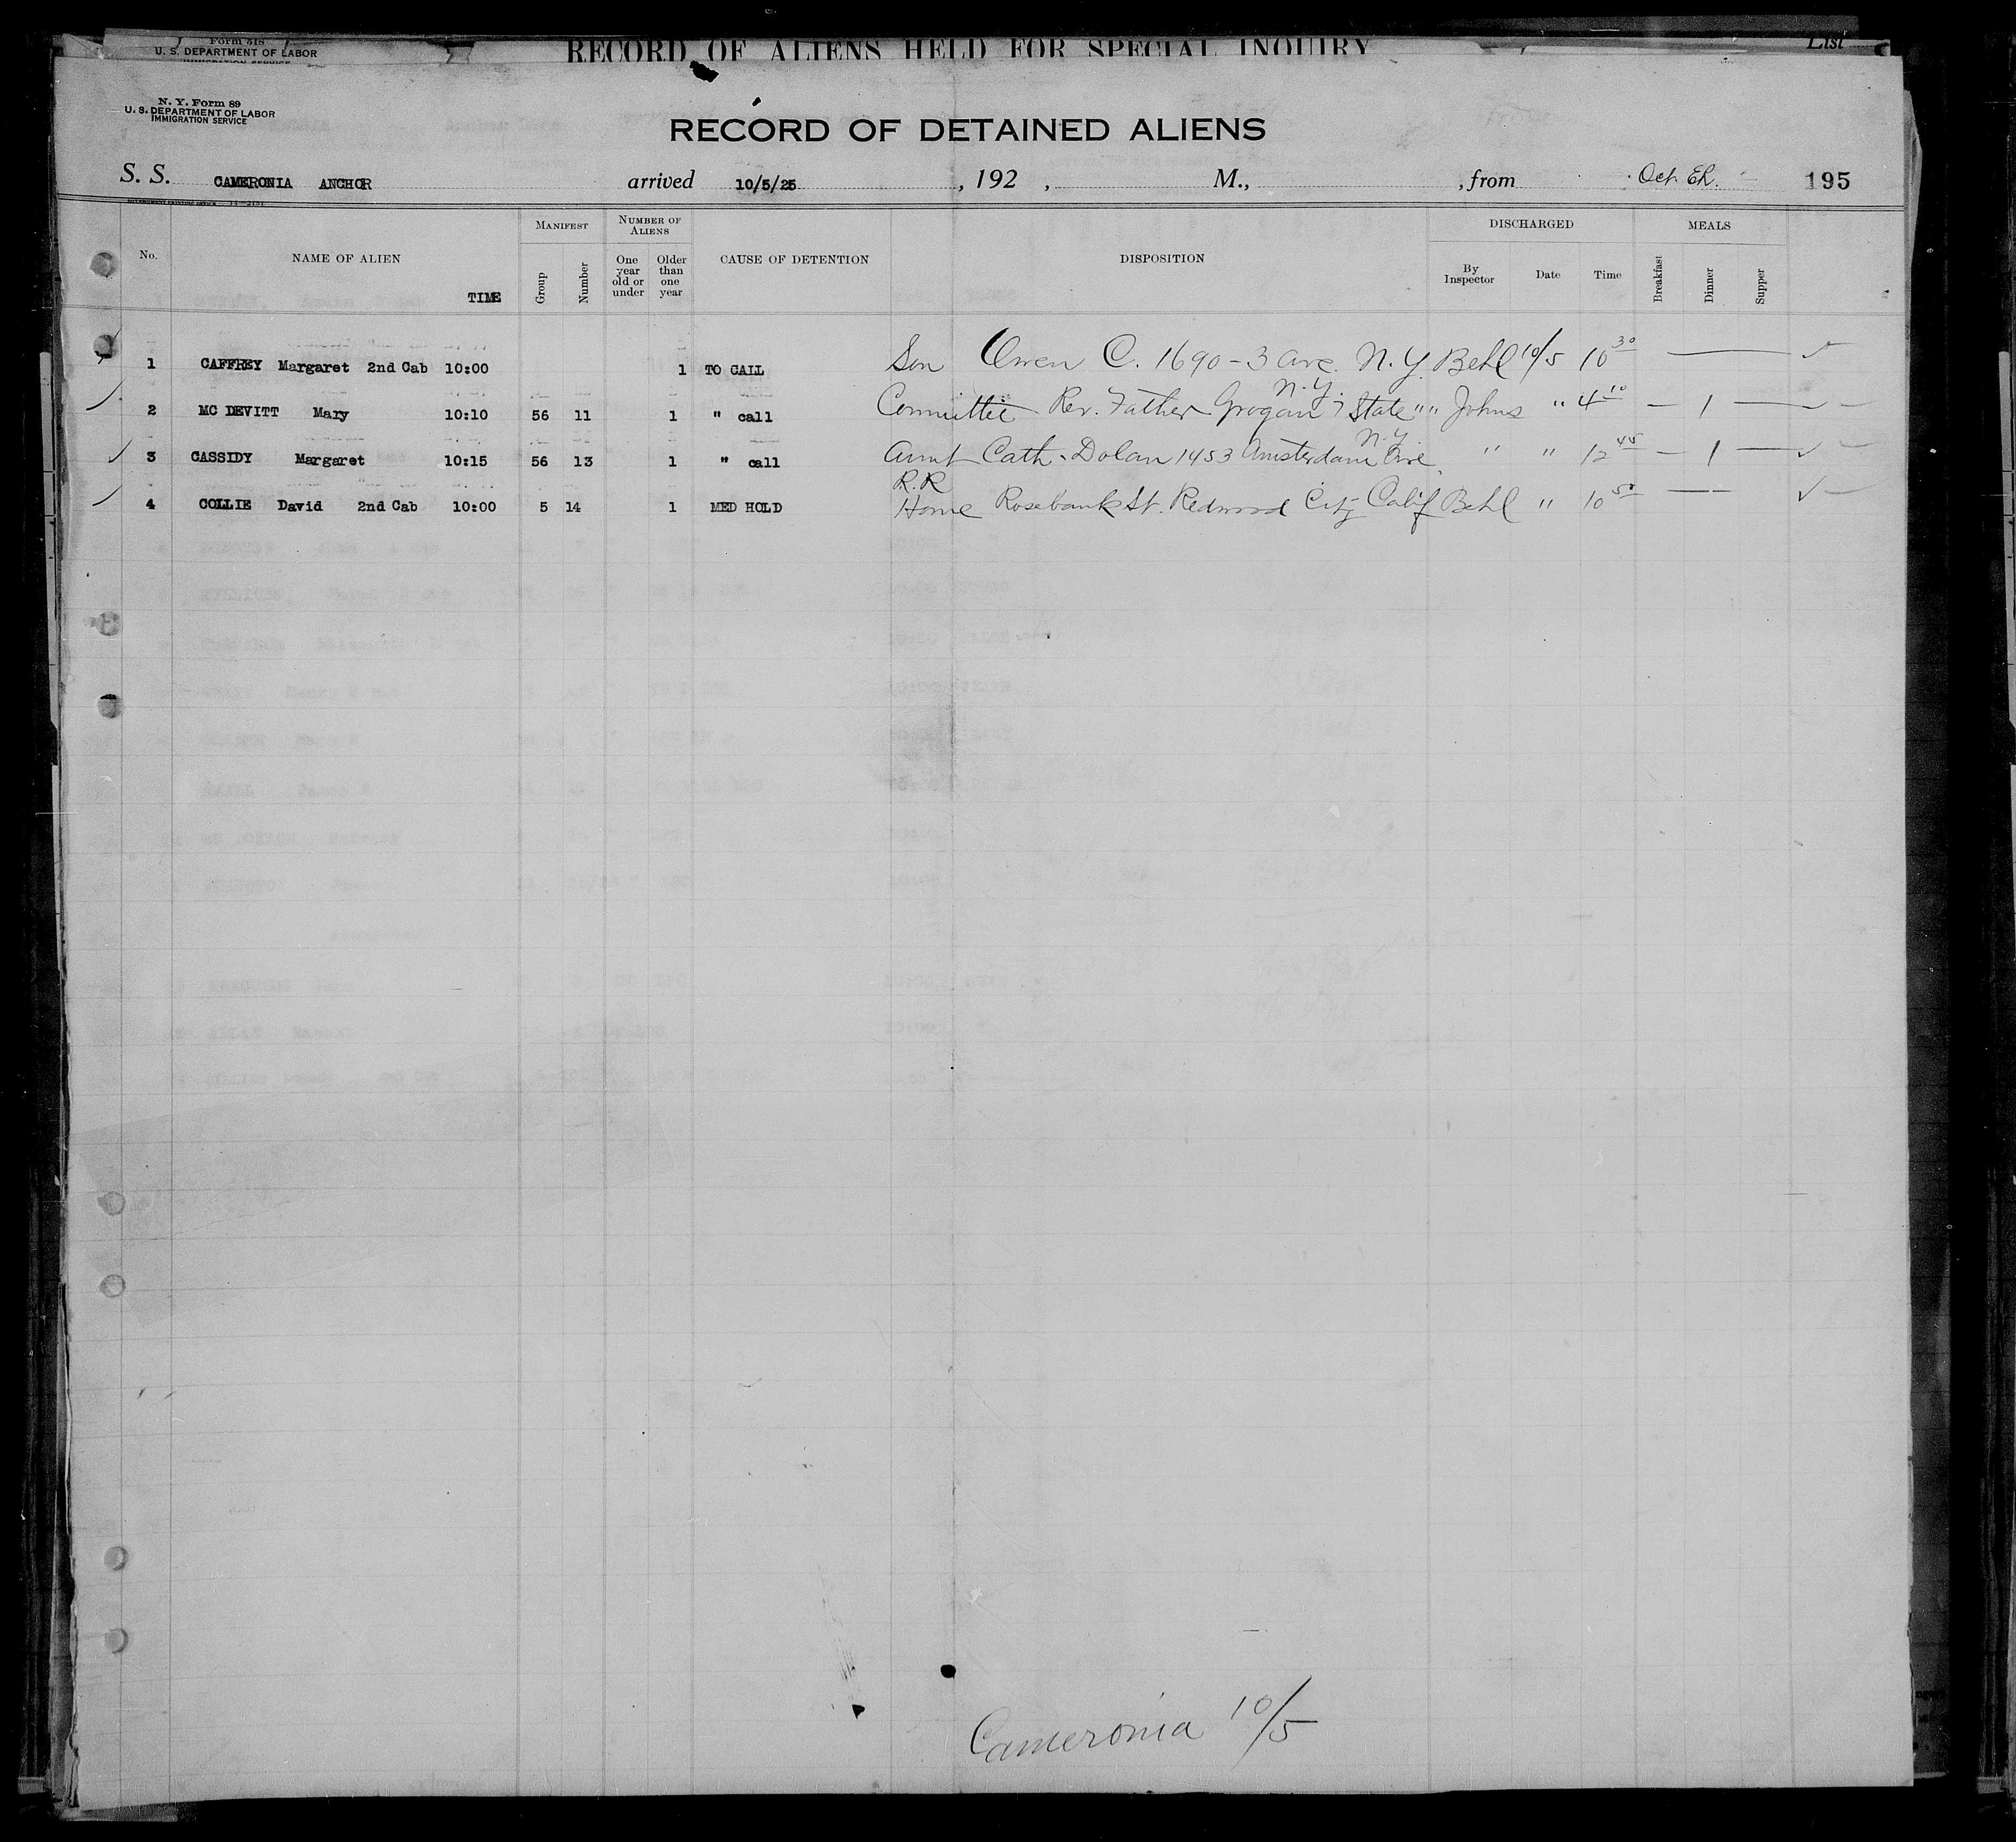 Form 518
U. S. DEPARTMENT OF LABOR
IMMIGRATION SERVICE
RECORD OF ALIENS HELD FOR SPECIAL INQUIRY
List
N. Y. Form 89
U. S. DEPARTMENT OF LABOR
IMMIGRATION SERVICE
RECORD OF DETAINED ALIENS
S. S. CAMERONIA ANCHOR arrived 10/5/25, 192 , M., , from Oct. 195
No. NAME OF ALIEN TIME MANIFEST Group Number NUMBER OF ALIENS One year old or under Older than one year CAUSE OF DETENTION DISPOSITION DISCHARGED By Inspector Date Time MEALS Breakfast Dinner Supper
1 CAFFREY Margaret 2nd Cab 10:00 1 TO CALL Son Owen C. 1690-3 ave. N.Y. Behl 10/5 10 30
2 MC DEVITT Mary 10:10 56 11 1 " call Committee Rev. Father Grogan 7 State " " N.Y. Johns " 4 10 — 1 —
3 CASSIDY Margaret 10:15 56 13 1 " call Aunt Cath. Dolan 1453 Amsterdam Ave. N.Y. " " 12 45 — 1 —
4 COLLIE David 2nd Cab 10:00 5 14 1 MED HOLD R.R Home Rosebank St. Redwood City Calif Behl " 10 50 —
Cameronia 10/5